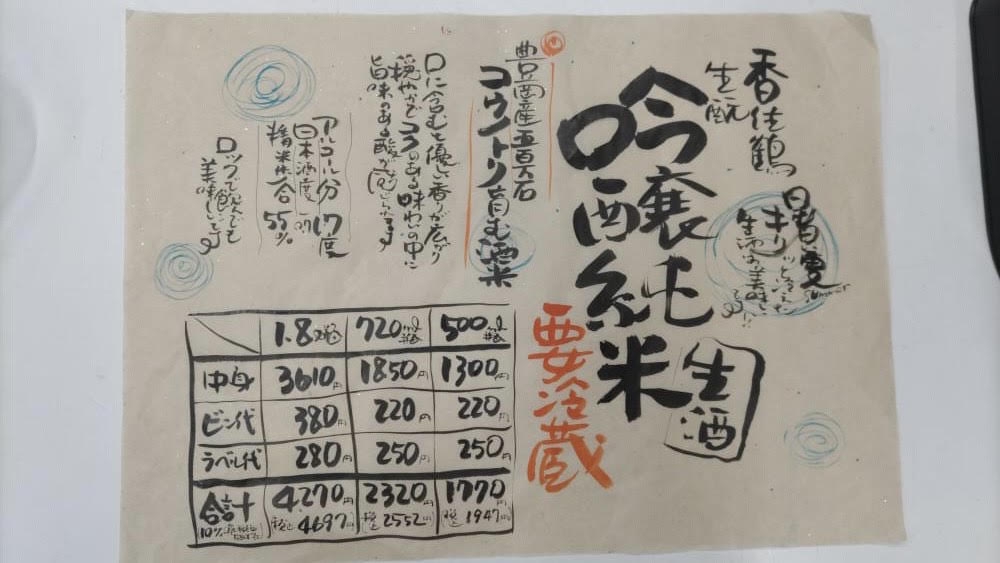 香住鶴
生酛
吟醸純米
生酒
要冷蔵
日者夏
キリッと冷えた
生酒は美味しい
豊岡産五百万石
コウノトリ育む酒米
口に含むと優しい香りが広がり
穏やかでコクのある味わいの中に
旨味のある酸が感じられます
アルコール分 17度
日本酒度
精米歩合 55%
ロックで飲んでも
美味しいです
1.8 720 500
中身 3610円 1850円 1300円
ビン代 380円 220円 220円
ラベル代 280円 250円 250円
合計 4270円 2320円 1770円
10% 税込 4697円 税込 2552円 税込 1947円